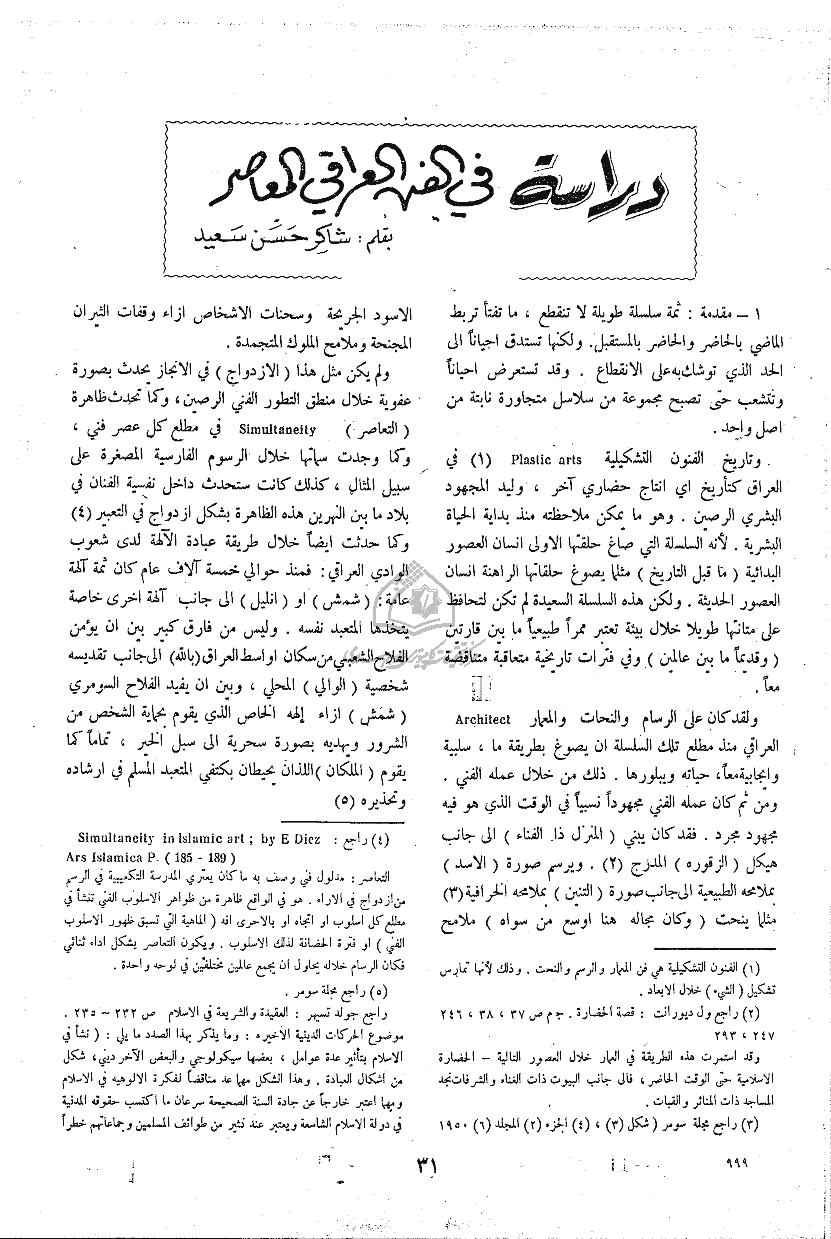 دراسة في الفن العراقي المعاصر
بقلم : شاكر حسن سعيد
١ – مقدمة : ثمة سلسلة طويلة لا تنقطع ، ما تفتأ تربط
الماضي بالحاضر والحاضر بالمستقبل. ولكنها تستدق احياناً الى
الحد الذي توشك به على الانقطاع . وقد تستعرض احياناً
وتتشعب حتى تصبح مجموعة من سلاسل متجاورة نابتة من
اصل واحد .
وتاريخ الفنون التشكيلية Plastic arts (١) في
العراق كتأريخ اي انتاج حضاري آخر ، وليد المجهود
البشري الرصين . وهو ما يمكن ملاحظته منذ بداية الحياة
البشرية . لأنه السلسلة التي صاغ حلقتها الاولى انسان العصور
البدائية ( ما قبل التاريخ ) مثلما يصوغ حلقاتها الراهنة انسان
العصور الحديثة . ولكن هذه السلسلة السعيدة لم تكن لتحافظ
على متانتها طويلا خلال بيئة تعتبر ممراً طبيعياً ما بين قارتين
( وقديماً ما بين عالمين ) وفي فترات تاريخية متعاقبة متناقضة
معاً .
ولقد كان على الرسام والنحات والمعمار Architect
العراقي منذ مطلع تلك السلسلة ان يصوغ بطريقة ما ، سلبية
وايجابية معاً، حياته ويبلورها . ذلك من خلال عمله الفني .
ومن ثم كان عمله الفني مجهوداً نسبياً في الوقت الذي هو فيه
مجهود مجرد . فقد كان يبني ( المنزل ذا الفناء ) الى جانب
هيكل ( الزقوره ) المدرج (٢) . ويرسم صورة ( الاسد )
بملامحه الطبيعية الى جانب صورة ( التنين ) بملامحه الخرافية (٣)
مثلما ينحت ( وكان مجاله هنا اوسع من سواه ) ملامح
(١) الفنون التشكيلية هي فن المعمار والرسم والنحت . وذلك لأنها تمارس
تشكيل ( الشيء ) خلال الابعاد .
(٢) راجع ول ديورانت : قصة الحضارة . ج م ص ٣٧ ، ٣٨ ، ٢٤٦
٢٤٧ ، ٢٩٣
وقد استمرت هذه الطريقة في العمار خلال العصور التالية – الحضارة
الاسلامية حتى الوقت الحاضر ، فالى جانب البيوت ذات الفناء والشرفات نجد
المساجد ذات المنائر والقباب .
(٣) راجع مجلة سومر ( شكل (٣) ، (٤) الجزء (٢) المجلد (٦) ١٩٥٠
الاسود الجريحة وسحنات الاشخاص ازاء وقفات الثيران
المجنحة وملامح الملوك المتجمدة .
ولم يكن مثل هذا ( الازدواج ) في الانجاز يحدث بصورة
عفوية خلال منطق التطور الفني الرصين، وكما تحدث ظاهرة
( التعاصر ) Simultaneity في مطلع كل عصر فني ،
وكما وجدت سماتها خلال الرسوم الفارسية المصغرة على
سبيل المثال ، كذلك كانت ستحدث داخل نفسية الفنان في
بلاد ما بين النهرين هذه الظاهرة بشكل ازدواج في التعبير (٤)
وكما حدثت ايضاً خلال طريقة عبادة الآلهة لدى شعوب
الوادي العراقي: فمنذ حوالي خمسة آلاف عام كان ثمة آلهة
عامة: ( شمش ) او ( انليل ) الى جانب آلهة اخرى خاصة
يتخذها المتعبد نفسه . وليس من فارق كبير بين ان يؤمن
الفلاح الشعبي من سكان اواسط العراق (بالله) الى جانب تقديسه
شخصية ( الوالي ) المحلي ، وبين ان يفيد الفلاح السومري
( شمش ) ازاء إلهه الخاص الذي يقوم بحماية الشخص من
الشرور ويهديه بصورة سحرية الى سبل الخير ، تماماً كما
يقوم ( الملكان ) اللذان يحيطان بكتفي المتعبد المسلم في ارشاده
وتحذيره (٥)
(٤) راجع : Simultaneity in islamic art ; by E Diez
Ars Islamica P. ( 185 - 189 )
التعاصر : مدلول فني وصف به ما كان يعتري المدرسة التكعيبية في الرسم
من ازدواج في الاراء . هو في الواقع ظاهرة من ظواهر الاسلوب الفني تنشأ في
مطلع كل اسلوب او اتجاه او بالاحرى انه ( الماهية التي تسبق ظهور الاسلوب
الفني ) او فترة الحضانة لذلك الاسلوب . ويكون التعاصر بشكل اداء ثنائي
فكان الرسام خلاله يحاول أن يجمع عالمين مختلفين في لوحه واحدة .
(٥) راجع مجلة سومر .
راجع جولد تسيهر : العقيدة والشريعة في الاسلام ص ٢٣٢ – ٢٣٥ .
موضوع الحركات الدينية الاخيره : وما يذكر بهذا الصدد ما يلي : ( نشأ في
الاسلام بتأثير عدة عوامل ، بعضها سيكولوجي والبعض الآخر ديني، شكل
من أشكال العبادة . وهذا الشكل مهما عد مناقضاً لفكرة الالوهيه في الاسلام
ومهما اعتبر خارجاً عن جادة السنة الصحيحة سرعان ما أكتسب حقوقه المدنية
في دولة الاسلام الشاسعة ويعتبر عند كثير من طوائف المسلمين وجماعاتهم خطراً
٩٩٩
٣١